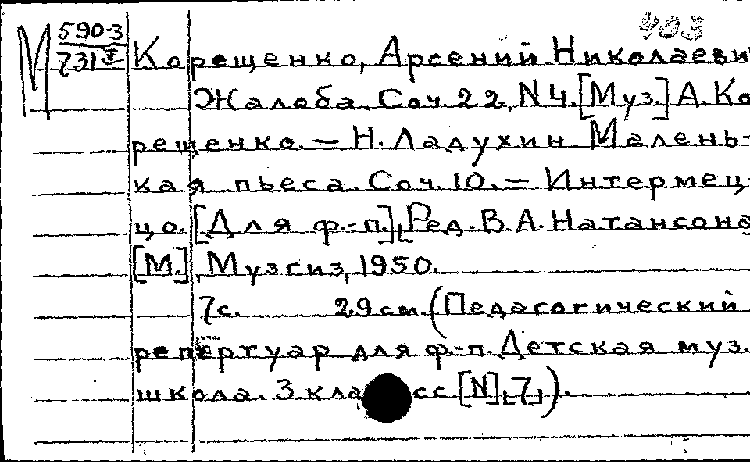 403
М 590-3
731
Корещенко, Арсений Николаеви
Жалоба. Соч. 22, N4. [Муз.] А. Ко
рещенко. — Н. Ладухин Малень-
кая пьеса. Соч. 10. — Интермец-
цо. [Для ф.-п.], Ред. В. А. Натансона
[М.], Музгиз, 1950.
7с. 29 см. (Педагогический
репертуар для ф-п. Детская муз.
школа. 3 класс [N], 7,).